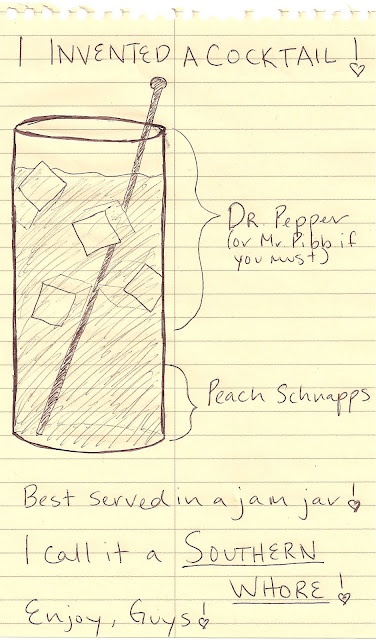 I INVENTED A COCKTAIL!
DR. Pepper
(or Mr. Pibb if
you must)
Peach Schnapps
Best served in a jam jar!
I call it a SOUTHERN
WHORE!
Enjoy, Guys!